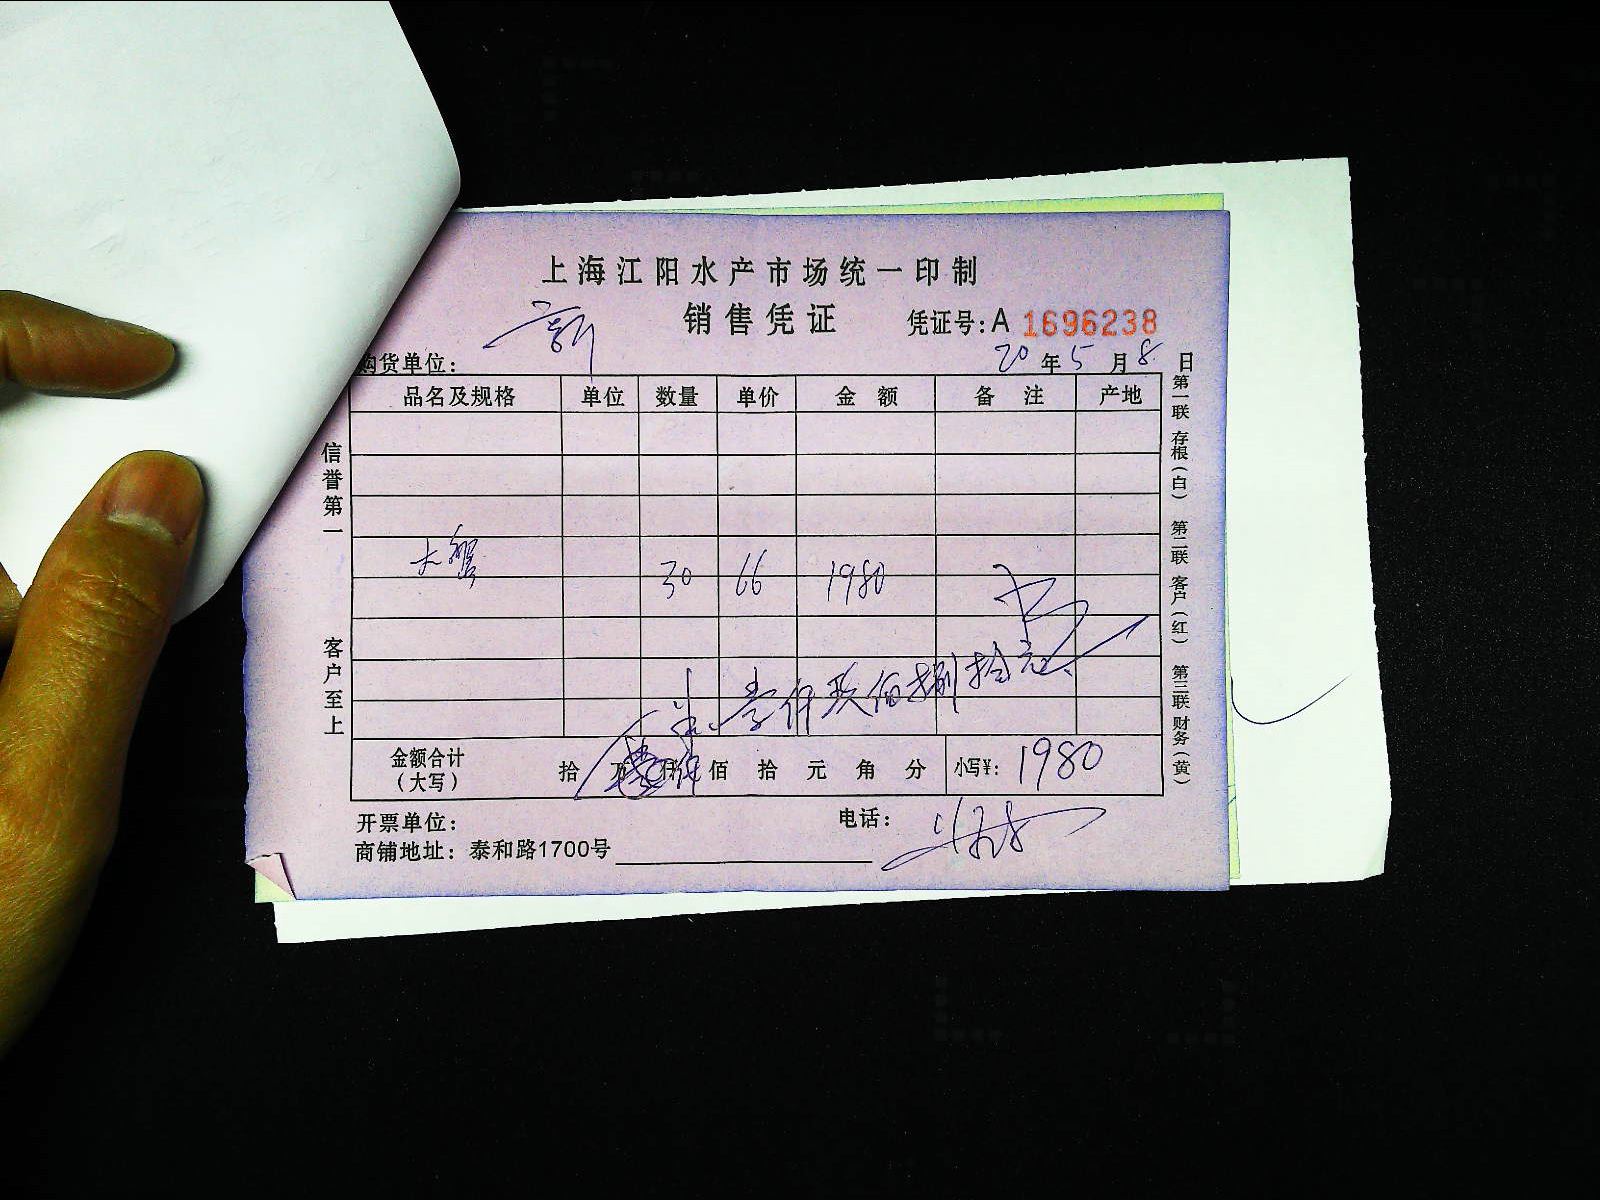 上海江阳水产市场统一印制
销售凭证 凭证号:A 1696238
购货单位: 20年5月8日
品名及规格 单位 数量 单价 金额 备注 产地
大蟹 30 66 1980
壹仟玖佰捌拾元
金额合计(大写) 拾 万 仟 佰 拾 元 角 分 小写¥: 1980
开票单位: 电话:
商铺地址: 泰和路1700号
信誉第一 客户至上
第一联 存根(白) 第二联 客户(红) 第三联 财务(黄)